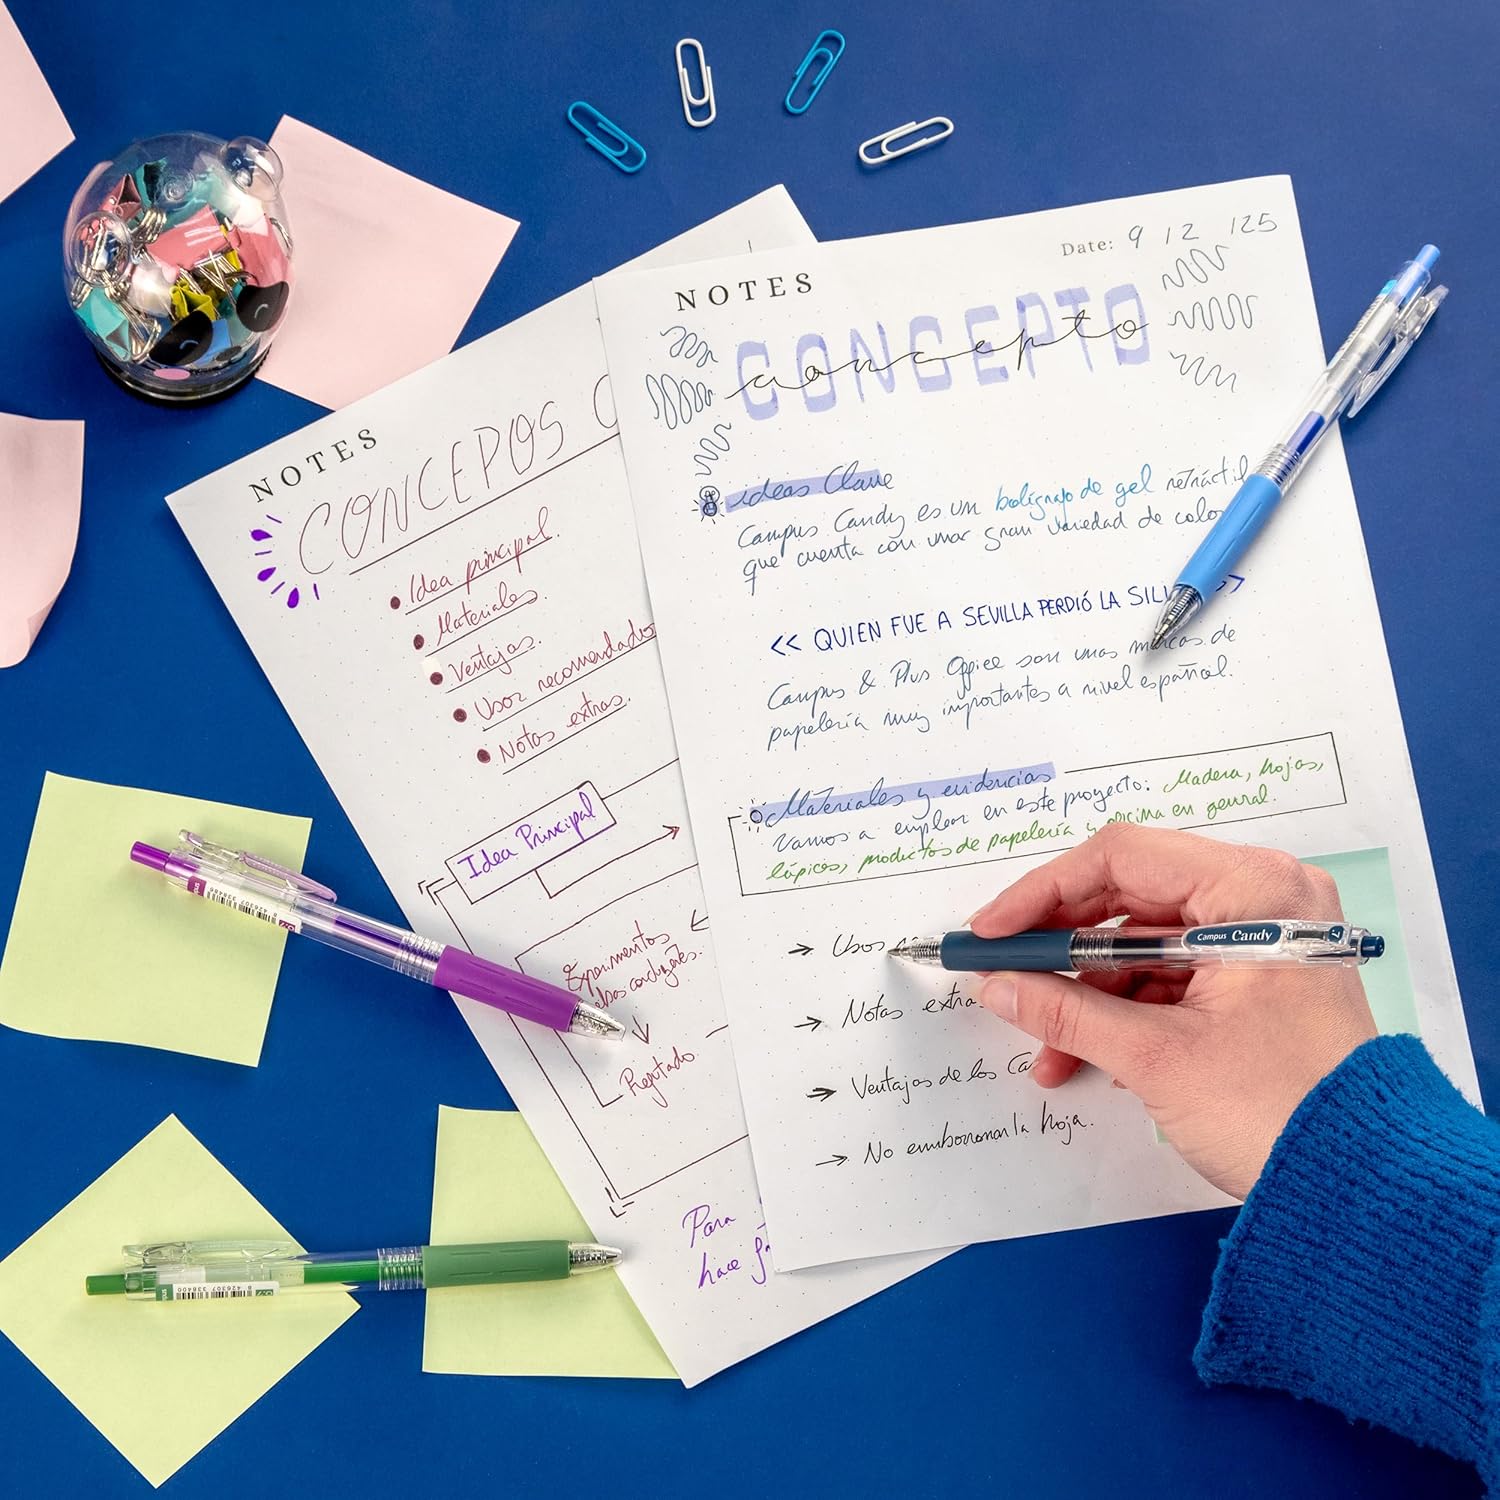 NOTES
CONCEPOS C
Idea principal.
Materiales.
Ventajas.
Usos recomendados
Notas extras.
Idea Principal
Experimentos
Reportado.
Para
hace
NOTES
Date: 9 / 2 / 25
CONCEPTO
concepto
ideas Clave
Campus Candy es un bolígrafo de gel retráctil
que cuenta con una gran variedad de colo
<< QUIEN FUE A SEVILLA PERDIÓ LA SILL >>
Campus & Plus Office son unas marcas de
papelería muy importantes a nivel español.
Materiales y evidencias
Vamos a emplear en este proyecto: Madera, hojas,
lápices, productos de papelería y oficina en general.
→ Usos
→ Notas extra
→ Ventajas de los Ca
→ No emborronan la hoja.
Campus Candy
0.7
8 426307 338486
0.7
8 426307 338400